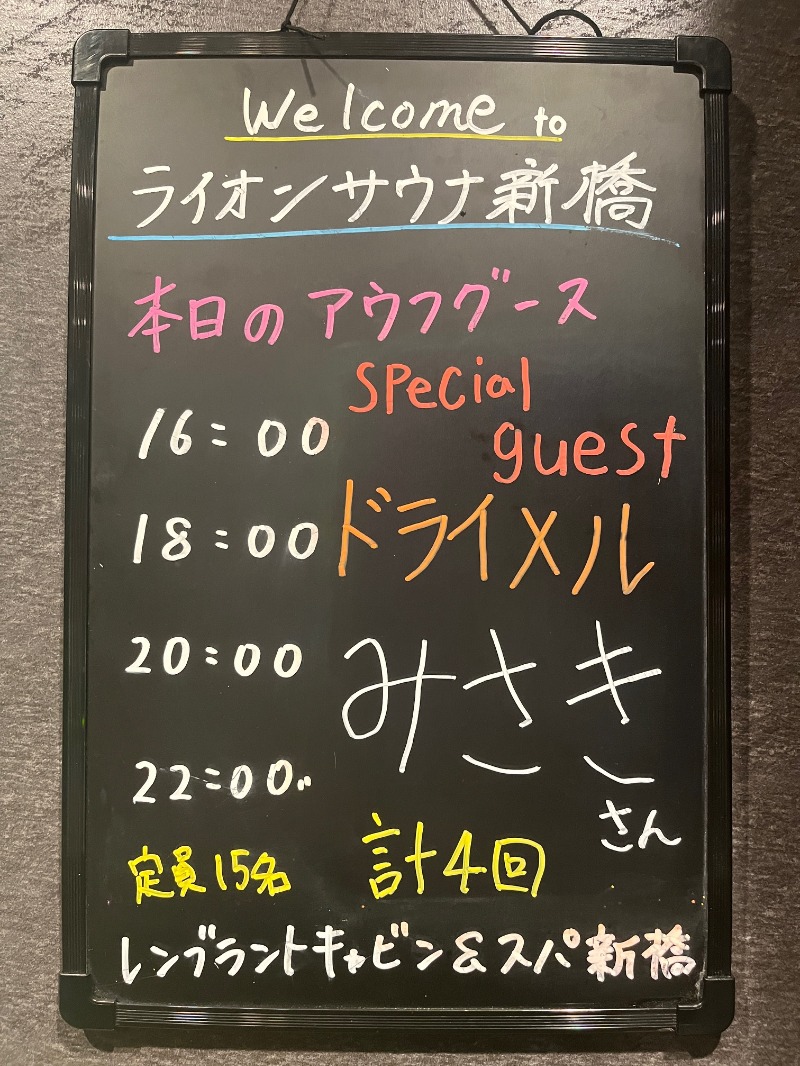 Welcome to
ライオンサウナ新橋
本日のアウフグース
special
guest
16:00
18:00 ドライメル
20:00 みさき
22:00
さん
定員15名 計4回
レンブラントキャビン&スパ新橋